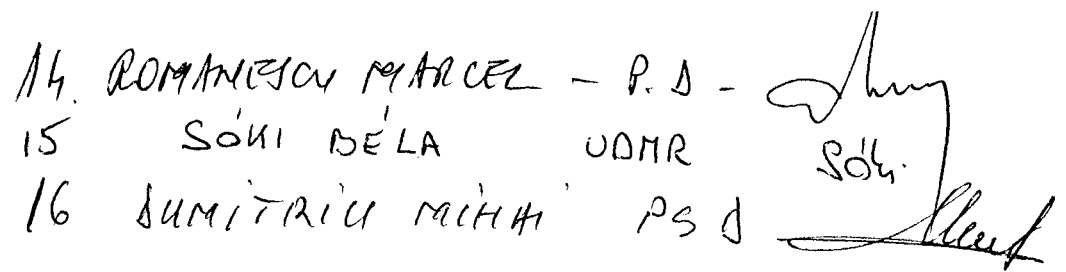 14. ROMANESCU MARCEL - P.D -
15 SÓKI BÉLA UDMR Sóki
16 DUMITRIU MIHAI PSD